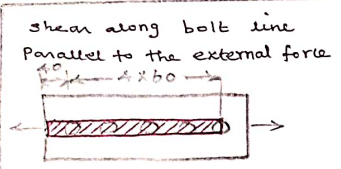 shear along bolt line
Parallel to the external force
40
4x60